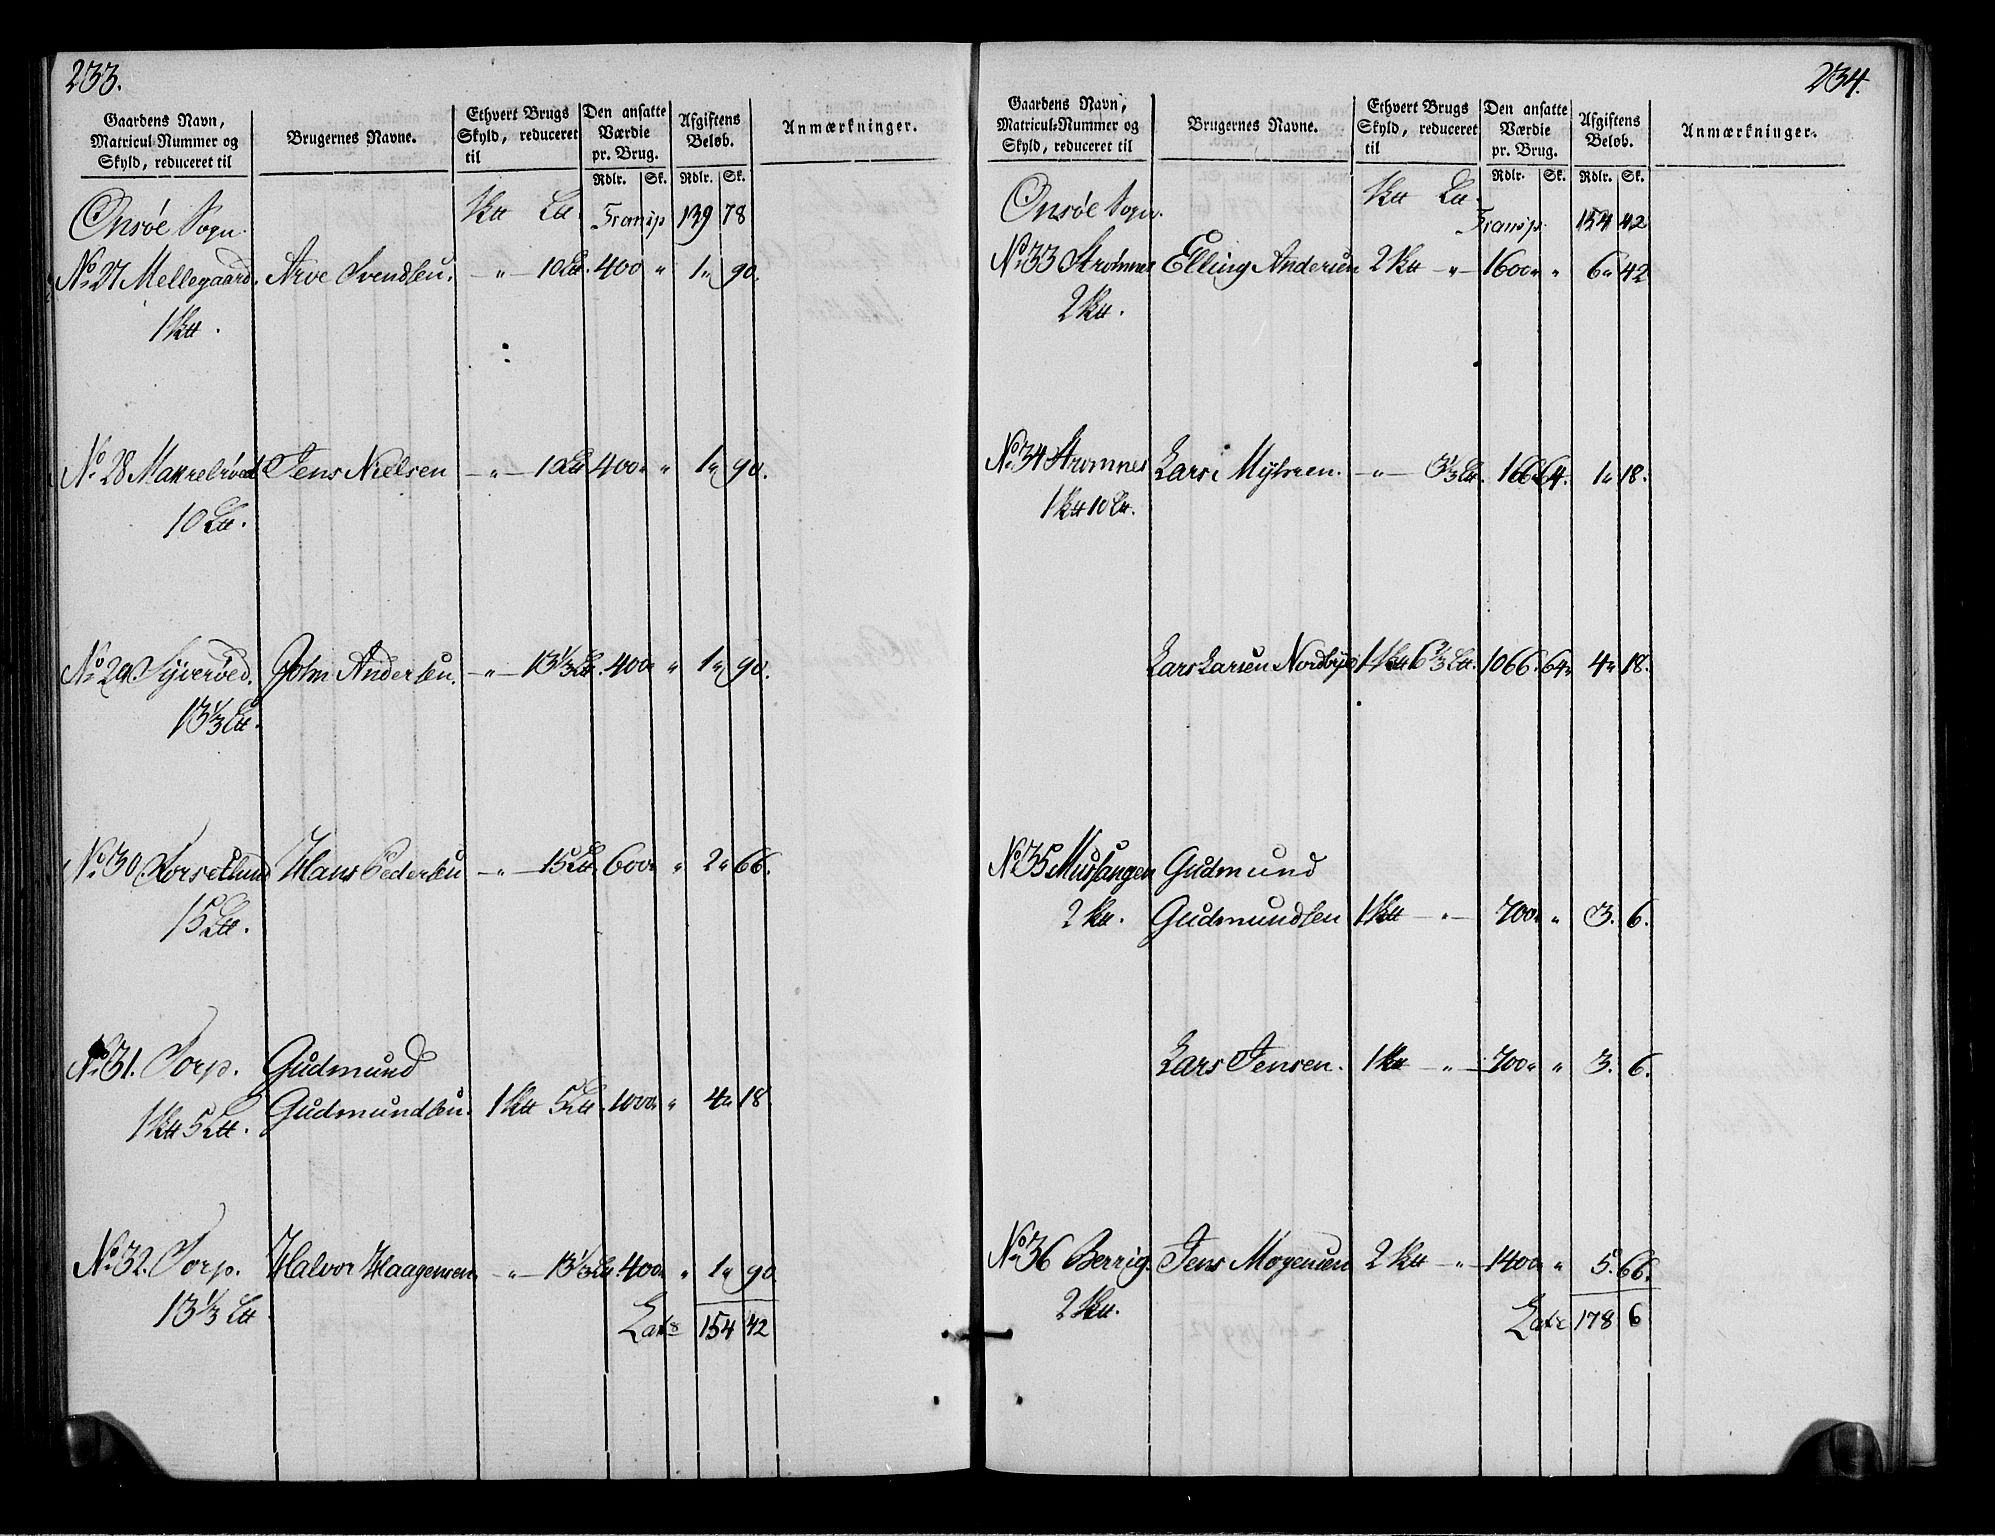 233.
Gaardens Navn, Matricul-Nummer og Skyld, reduceret til | Brugernes Navne. | Ethvert Brugs Skyld, reduceret til | Den ansatte Værdie pr. Brug. | Afgiftens Beløb. | Anmærkninger.
Rdlr. Sk. Rdlr. Sk.
Onsøe Sogn. Transp 139 78
No. 27 Mellegaard. Arve Svendsen. – " – 10 L. 400 " 1 " 90.
1 .
No. 28 Makrelrød Jens Nielsen – " – 10 L. 400 " " 1 " 90.
10 L.
No. 29 Syverød. John Andersen. – " – 13 1/3 L. 400 " " 1 " 90.
13 1/3 L.
No. 30. Torsetlund Hans Pedersen – " – 15 L. 600 " " 2 " 66.
15 L.
No. 31. Torp. Gudmund
Gudmundsen. 1 5 L. 1000 " " 4 " 18
1 5 L.
No. 32. Torp. Halvor Haagensen – " – 13 1/3 L. 400 " " 1 " 90
13 1/3 L.
Late 154 42
234.
Gaardens Navn, Matricul-Nummer og Skyld, reduceret til | Brugernes Navne. | Ethvert Brugs Skyld, reduceret til | Den ansatte Værdie pr. Brug. | Afgiftens Beløb. | Anmærkninger.
Rdlr. Sk. Rdlr. Sk.
Onsøe Sogn. Transp. 154 42
No. 33 Strømnes Elling Andersen 2 – " – 1600 " " 6 " 42
2 .
No. 34 Strømnes Lars i Myhren. – " – 3 1/3 L. 166 64. 1 " 18.
1 10 L.
Lars Larsen Nordbye 1 6 2/3 L. 1066. 64 " 4 " 18.
No. 35 Muslangen Gudmund
2 . Gudmundsen 1 – " – 700 " " 3. 6.
Lars Jensen. 1 – " – 700 " " 3. 6.
No. 36 Berrig. Jens Mogensen 2 – " – 1400 " " 5. 66.
2 .
Late 178 6